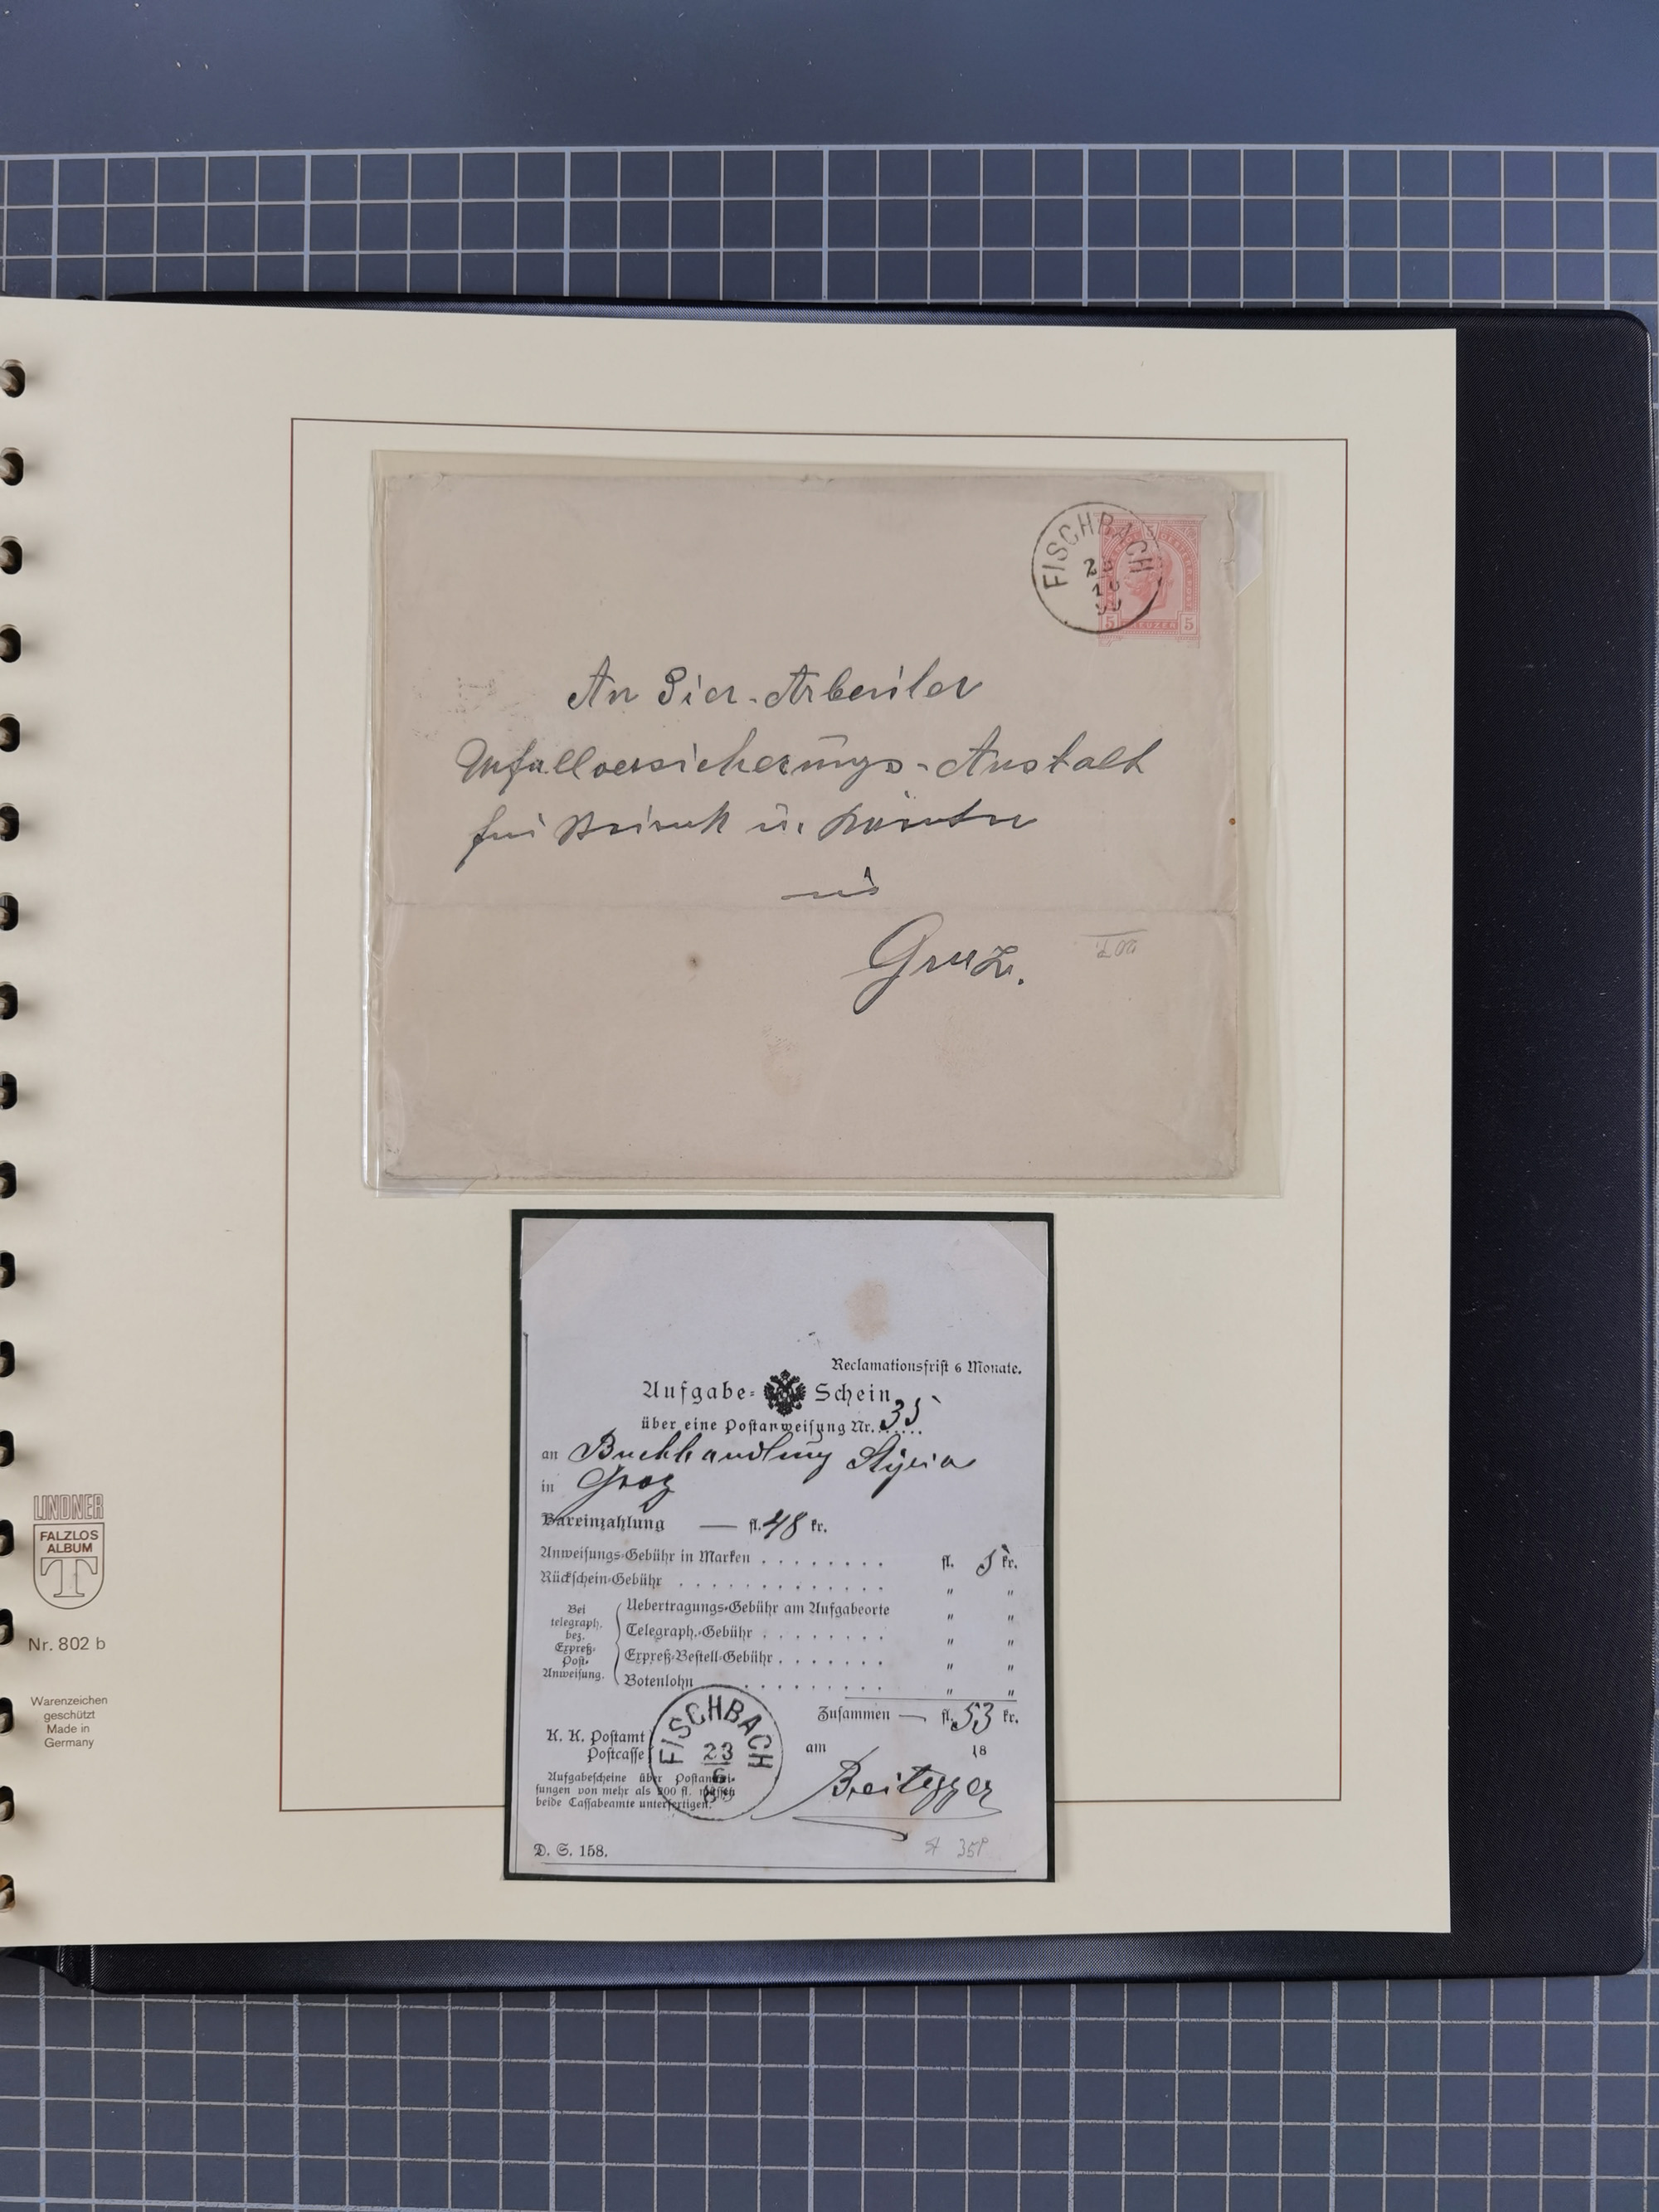 FISCHBACH
5
5 KREUZER 5
An Die Arbeiter
Unfallversicherungs-Anstalt
für Steierm u. Kärnten
in
Graz.
Reclamationsfrist 6 Monate.
Aufgabe- Schein
über eine Postanweisung Nr. 35
an Buchhandlung Styria
in Graz
Bareinzahlung — fl. 48 kr.
Anweisungs-Gebühr in Marken . . . . . . . . fl. 5 kr.
Rückschein-Gebühr . . . . . . . . . . . . . " "
Bei telegraph. bez. Expreß-Post-Anweisung.
Uebertragungs-Gebühr am Aufgabeorte " "
Telegraph.-Gebühr . . . . . . . . " "
Expreß-Bestell-Gebühr . . . . . . . " "
Botenlohn . . . . . . . . . . " "
Zusammen — fl. 53 kr.
K. K. Postamt
Postcasse
am 18
FISCHBACH
23
6
Breitegger
Aufgabescheine über Postanwei-
sungen von mehr als 200 fl. müssen
beide Cassabeamte unterfertigen.
D. S. 158.
35P
LINDNER
FALZLOS
ALBUM
T
Nr. 802 b
Warenzeichen
geschützt
Made in
Germany